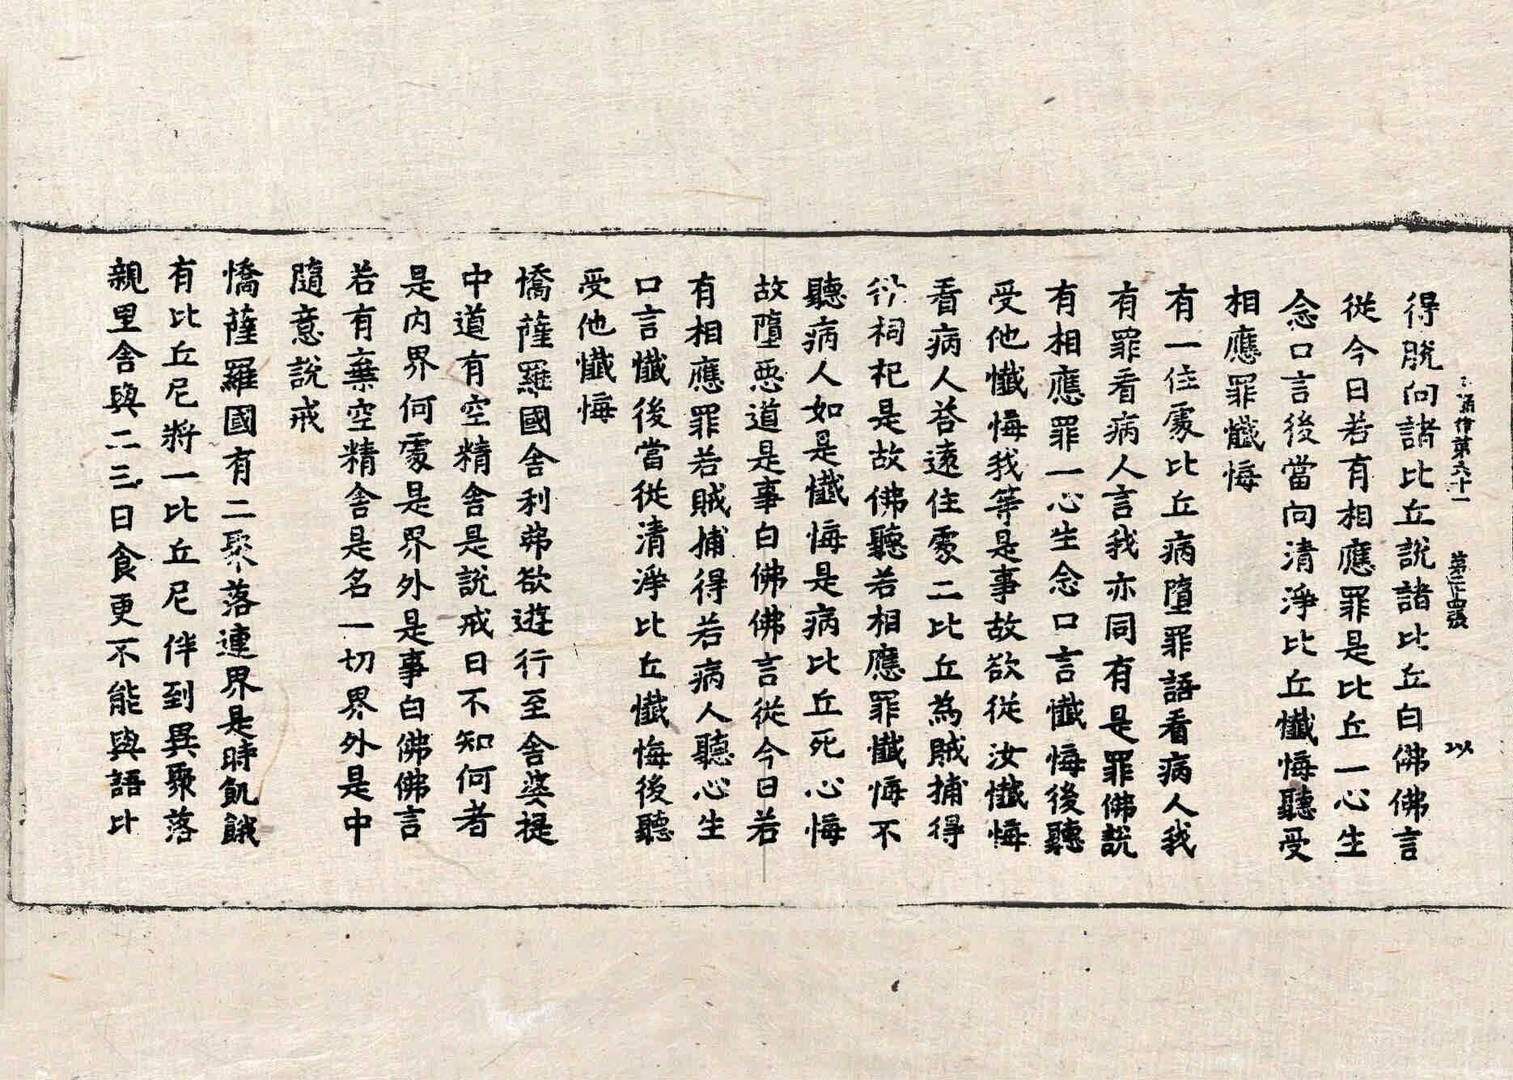 誦律第六十一 第二十四張 以
得脫向諸比丘說諸比丘白佛佛言
從今日若有相應罪是比丘一心生
念口言後當向清淨比丘懺悔聽受
相應罪懺悔
有一住處比丘病墮罪語看病人我
有罪看病人言我亦同有是罪佛說
有相應罪一心生念口言懺悔後聽
受他懺悔我等是事故欲從汝懺悔
看病人荅遠住處二比丘為賊捕得
祠祀是故佛聽若相應罪懺悔不
聽病人如是懺悔是病比丘死心悔
故墮惡道是事白佛佛言從今日若
有相應罪若賊捕得若病人聽心生
口言懺後當從清淨比丘懺悔後聽
受他懺悔
憍薩羅國舍利弗欲遊行至舍婆提
中道有空精舍是說戒日不知何者
是內界何處是界外是事白佛佛言
若有棄空精舍是名一切界外是中
隨意說戒
憍薩羅國有二聚落連界是時飢餓
有比丘尼將一比丘尼伴到異聚落
親里舍與二三日食更不能與語比